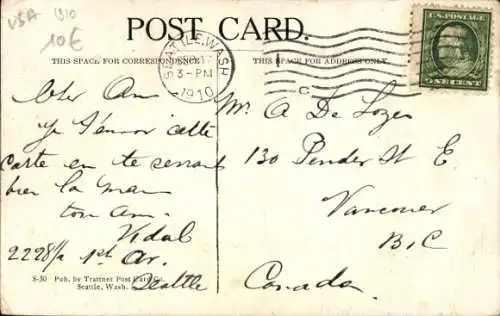 USA 1910
10€
POST CARD.
THIS SPACE FOR CORRESPONDENCE
THIS SPACE FOR ADDRESS ONLY.
SEATTLE, WASH
3-PM
1910
C
U.S. POSTAGE
ONE CENT
Cher Ami
Je t'envoi cette
Carte en te serrant
bien la main
ton ami
Vidal
2228½ 1st Av.
Seattle
Mr. A De Lozes
130 Pender St E.
Vancouver
B.C
Canada.
S-30 Pub. by Trattner Post Card Co.
Seattle, Wash.